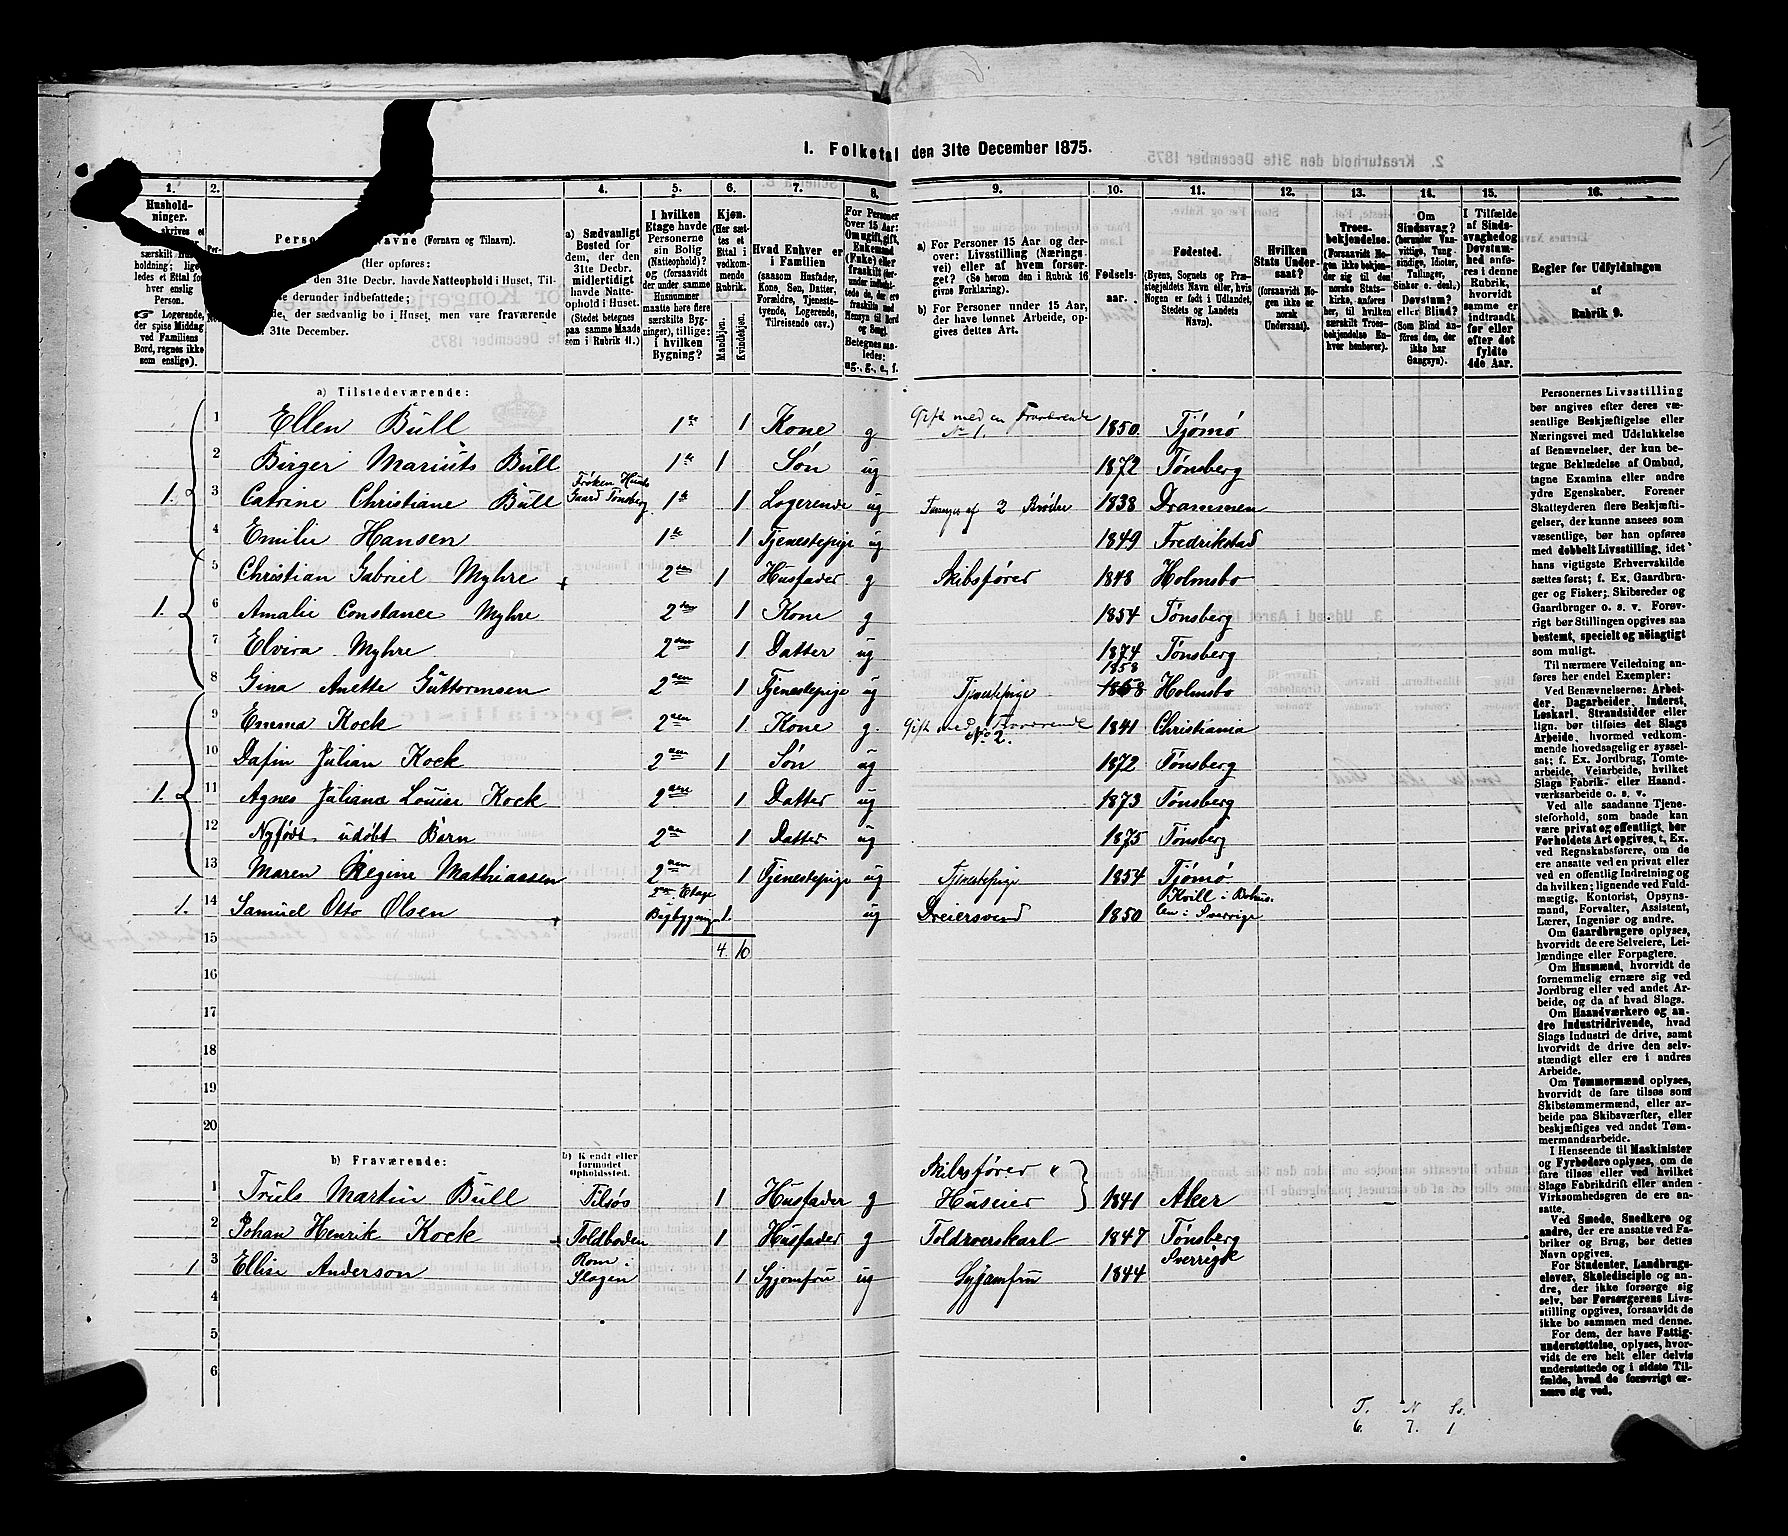 1. Folketal den 31te December 1875.
1. 2. 4. 5. 6. 7. 8. 9. 10. 11. 12. 13. 14. 15. 16.
Hushold-
ninger.
a) Sædvanligt
Bosted for
dem, der den
31te Decbr.
midlertidigt
havde Natte-
ophold i Huset.
(Stedet betegnes
paa samme Maade
som i Rubrik 11.)
I hvilken
Etage havde
Personerne
sin Bolig
(Natteophold)?
og (forsaavidt
der under samme
Husnummer
maatte høre flere
særskilte Byg-
ninger), tillige:
i hvilken
Bygning?
Kjøn.
(Her sæt-
tes et
Ettal i
vedkom-
mende
Rubrik.
Mandkjøn.
Kvindekjøn.
Hvad Enhver er
i Familien
(saasom Husfader,
Kone, Søn, Datter,
Forældre, Tjeneste-
tyende, Logerende,
Tilreisende osv.)
a) For Personer 15 Aar og der-
over: Livsstilling (Nærings-
vei) eller af hvem forsør-
get. (Se herom den i Rubrik 16
givne Forklaring).
b) For Personer under 15 Aar,
der have lønnet Arbeide, op-
gives dettes Art.
Fødsels-
aar.
Fødested.
(Byens, Sognets og Præ-
stegjeldets Navn eller, hvis
Nogen er født i Udlandet,
Stedets og Landets
Navn).
Hvilken
Stats Under-
saat?
(forsaavidt No-
gen ikke er
norsk
Undersaat).
Troes-
bekjendelse.
(Forsaavidt No-
gen ikke bekjen-
der sig til den
norske Stats-
kirke, anføres
her, til hvilken
særskilt Troes-
bekjendelse En-
hver henhører).
Om
Sindssvag?
(herunder Van-
vittige, Tung-
sindige, Idioter,
Tullinger,
Sinker o. desl.)
Døvstum?
eller Blind?
(Som Blind an-
føres den, der
ikke har
Gangsyn).
I Tilfælde
af Sinds-
svaghed og
Døvstum-
hed anfø-
res i denne
Rubrik,
hvorvidt
samme er
indtraadt
før eller
efter det
fyldte
4de Aar.
Regler for Udfyldningen
af
Rubrik 9.
a) Tilstedeværende:
1 Ellen Bull 1ste 1 Kone g Gift med en Fraværende No 1. 1850 Tjømø
2 Birger Marius Bull 1ste 1 Søn ug 1872 Tønsberg
1. 3 Catrine Christiane Bull 1ste 1 Logerende ug 2 Brødre 1838 Drammen
4 Emilie Hansen 1ste 1 Tjenestepige ug 1849 Fredrikstad
5 Christian Gabriel Myhre 2den 1 Husfader g Skibsfører 1848 Holmsbo
1. 6 Amalie Constance Myhre 2den 1 Kone g 1854 Tønsberg
7 Elvira Myhre 2den 1 Datter ug 1874 Tønsberg
8 Gina Anette Guttormsen 2den 1 Tjenestepige ug Tjenestepige 1858 Holmsbo
9 Emma Kock 2den 1 Kone g. Gift med Fraværende No 2. 1841 Christiania
10 Dafin Julian Kock 2den 1 Søn ug 1872 Tønsberg
1. 11 Agnes Juliana Louise Kock 2den 1 Datter ug 1873 Tønsberg
12 Nyfødt udøbt Barn 2den 1 Datter ug 1875 Tønsberg
13 Maren Regine Mathiassen 2den 1 Tjenestepige ug Tjenestepige 1854 Tjømø
1. 14 Samuel Otto Olsen Etage Bagbygning 1. ug Dreiersvend 1850 Sverrige
15 4 10
16
17
18
19
20
b) Fraværende:
b) Kjendt eller
formodet
Opholdssted.
1 Truls Martin Bull Tilsøs 1 Husfader g Skibsfører & Huseier 1841 Aker
2 Johan Henrik Kock Toldboden 1 Husfader g Toldroerskarl 1847 Tønsberg
1 3 Ellise Anderson Rom i Slagen 1 Syjomfru ug Syjomfru 1844 Sverrigk
4
5
6
Personernes Livsstilling
bør angives efter deres væ-
sentlige Beskjæftigelse eller
Næringsvei med Udelukkelse
af Benævnelser, der kun be-
tegne Beklædelse af Ombud,
tagne Examina eller andre
ydre Egenskaber. Forener
Skatteyderen flere Beskjæfti-
gelser, der kunne ansees som
væsentlige, bør han opføres
med dobbelt Livsstilling, idet
hans vigtigste Erhvervskilde
sættes først; f. Ex. Gaardbru-
ger og Fisker; Skibsreder og
Gaardbruger o. s. v. Forøv-
rigt bør Stillingen opgives saa
bestemt, specielt og nøiagtigt
som muligt.
Til nærmere Veiledning an-
føres her endel Exempler:
Ved Benævnelserne: Arbei-
der, Dagarbeider, Inderst,
Løskarl, Strandsidder eller
lign. bør tilføies det Slags
Arbeide, hvormed vedkom-
mende hovedsagelig er syssel-
sat; f. Ex. Jordbrug, Tomte-
arbeide, Veiarbeide, hvilket
Slags Fabrik- eller Haand-
værksarbeide o. s. v.
Ved alle saadanne Tjene-
steforhold, som baade kan
være privat og offentligt, bør
Forholdets Art opgives, t. Ex.
ved Regnskabsførere, om de
ere ansatte ved en privat eller
ved en offentlig Indretning og
da hvilken; lignende ved Fuld-
mægtig, Kontorist, Opsyns-
mand, Forvalter, Assistent,
Lærer, Ingeniør og andre.
Om Gaardbrugere oplyses,
hvorvidt de ere Selveiere, Lei-
lændinge eller Forpagtere.
Om Husmænd, hvorvidt de
fornemmelig ernære sig ved
Jordbrug eller ved andet Ar-
beide, og da af hvad Slags.
Om Haandværkere og an-
dre Industridrivende, hvad
Slags Industri de drive, samt
hvorvidt de drive den selv-
stændigt eller ere i andres
Arbeide.
Om Tømmermænd oplyses,
hvorvidt de fare tilsøs som
Skibstømmermænd, eller ar-
beide paa Skibsværfter, eller
beskjæftiges ved andet Tøm-
mermandsarbeide.
I Henseende til Maskinister
og Fyrbødere oplyses, om de
fare tilsøs eller ved hvilket
Slags Fabrikdrift eller anden
Virksomhedsgren de ere an-
satte.
Ved Smede, Snedkere og
andre, der ere ansatte ved Fa-
briker og Brug, bør dettes
Navn opgives.
For Studenter, Landbrugs-
elever, Skoledisciple og an-
dre, der ikke forsørge sig
selv, bør Forsørgerens Livs-
stilling opgives, forsaavidt de
ikke bo sammen med denne.
For dem, der have Fattig-
understøttelse, oplyses, hvor-
vidt de ere helt eller delvis
understøttede og i sidste Til-
fælde, hvad de forøvrigt er-
nære sig ved.
T. N Sv.
6. 7. 1